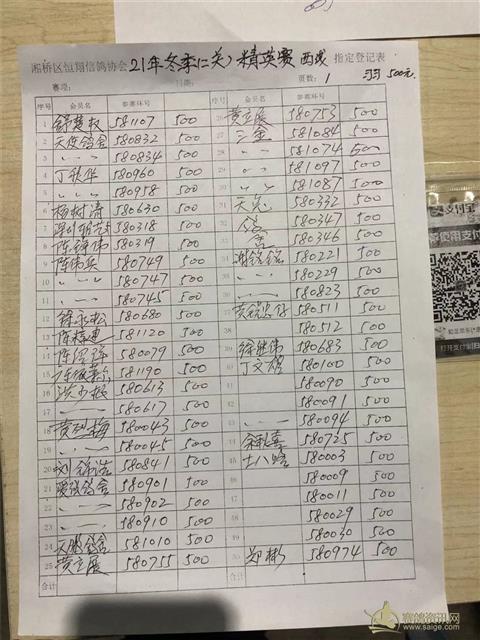 湘桥区恒翔信鸽协会21年冬季(二关)精英赛 西线 指定登记表
赛项: 日期: 页数: 1 羽500元
序号 会员名 参赛环号 序号 会员名 参赛环号
1 581107 500 26 黄立展 580753 500
2 天使鸽舍 580832 500 27 三金 581084 500
3 〃 580834 500 28 〃 581074 500
4 丁秋华 580960 500 29 〃 581097 500
5 〃 580958 500 30 〃 581087 500
6 杨树涛 580630 500 31 580332 500
7 580318 500 32 580347 500
8 陈锦伟 580319 500 33 580346 500
9 陈伟兵 580749 500 34 谢锐铭 580221 500
10 〃 580747 500 35 〃 580229 500
11 〃 580745 500 36 580823 500
12 徐永松 580680 500 37 580511 500
13 581120 500 38 580512 500
14 580079 500 39 徐继伟 580683 500
15 581190 500 40 丁文楷 580100 500
16 洪少根 580613 500 41 580090 500
17 〃 580617 500 42 580091 500
18 黄烈梅 580043 500 43 580094 500
19 〃 580045 500 44 580725 500
20 刘锦浩 580841 500 45 十八哈 580003 500
21 580901 500 46 580009 500
22 〃 580902 500 47 580011 500
23 〃 580910 500 48 580029 500
24 天鹏鸽舍 581010 500 49 580030 500
25 黄立展 580755 500 50 郑彬 580974 500
合计 合计
支付宝
赛鸽资讯网
www.saige.com